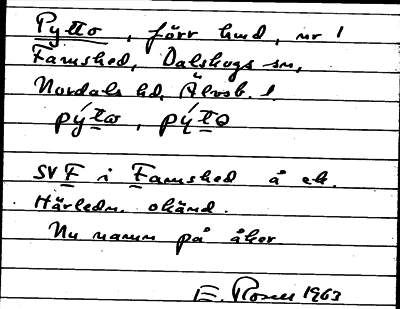 Pytto, förr hmd, nr 1
Famshed, Dalskogs sn,
Nordals hd, Älvsb. l.
pýtω, pýto
SV F i Famshed å ek.
Härledn. okänd.
Nu namn på åker
E. Rosell 1963